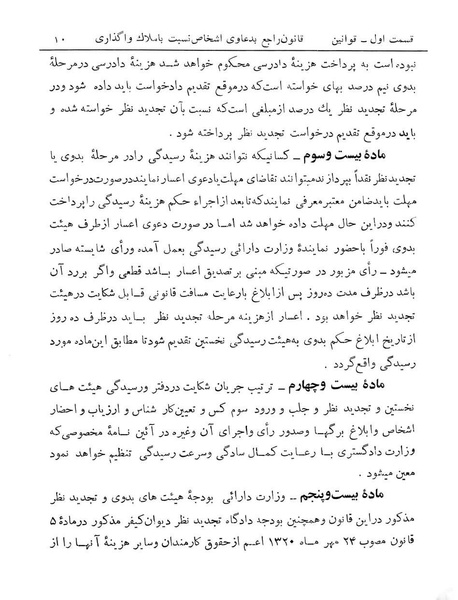 قسمت اول ـ قوانین قانون راجع بدعاوی اشخاص نسبت باملاك واگذاری ۱۰
نبوده است به پرداخت هزینهٔ دادرسی محکوم خواهد شد هزینهٔ دادرسی درمرحلهٔ
بدوی نیم درصد بهای خواسته است که درموقع تقدیم دادخواست باید داده شود ودر
مرحلهٔ تجدید نظر یك درصد ازمبلغی است که نسبت بآن تجدید نظر خواسته شده و
باید درموقع تقدیم درخواست تجدید نظر پرداخته شود .
مادهٔ بیست وسوم ـ کسانیکه نتوانند هزینهٔ رسیدگی رادر مرحلهٔ بدوی یا
تجدیدنظر نقداً بپردازند میتوانند تقاضای مهلت یادعوی اعسار نمایند درصورت درخواست
مهلت بایدضامن معتبرمعرفی نمایندکه تابعد ازاجراء حکم هزینهٔ رسیدگی راپرداخت
کنند ودراین حال مهلت داده خواهد شد اما در صورت دعوی اعسار ازطرف هیئت
بدوی فوراً باحضور نمایندهٔ وزارت دارائی رسیدگی بعمل آمده ورأی شایسته صادر
میشود ـ رأی مزبور در صورتیکه مبنی برتصدیق اعسار باشد قطعی واگر بررد آن
باشد درظرف مدت ده روز پس ازابلاغ بارعایت مسافت قانونی قابل شکایت درهیئت
تجدید نظر خواهد بود . اعسار ازهزینه مرحله تجدید نظر باید درظرف ده روز
ازتاریخ ابلاغ حکم بدوی به هیئت رسیدگی نخستین تقدیم شودتا مطابق این ماده مورد
رسیدگی واقع گردد .
مادهٔ بیست وچهارم ـ ترتیب جریان شکایت دردفتر ورسیدگی هیئت های
نخستین و تجدید نظر و جلب و ورود سوم کس و تعیین کار شناس و ارزیاب و احضار
اشخاص وابلاغ برگها وصدور رأی واجرای آن وغیره در آئین نامهٔ مخصوصی که
وزارت دادگستری با رعایت کمال سادگی وسرعت رسیدگی تنظیم خواهد نمود
معین میشود .
مادهٔ بیست وپنجم ـ وزارت دارائی بودجهٔ هیئت های بدوی و تجدید نظر
مذکور دراین قانون وهمچنین بودجه دادگاه تجدید نظر دیوان کیفر مذکور درمادهٔ ۵
قانون مصوب ۲۴ مهر ماه ۱۳۲۰ اعم ازحقوق کارمندان وسایر هزینهٔ آنها را از